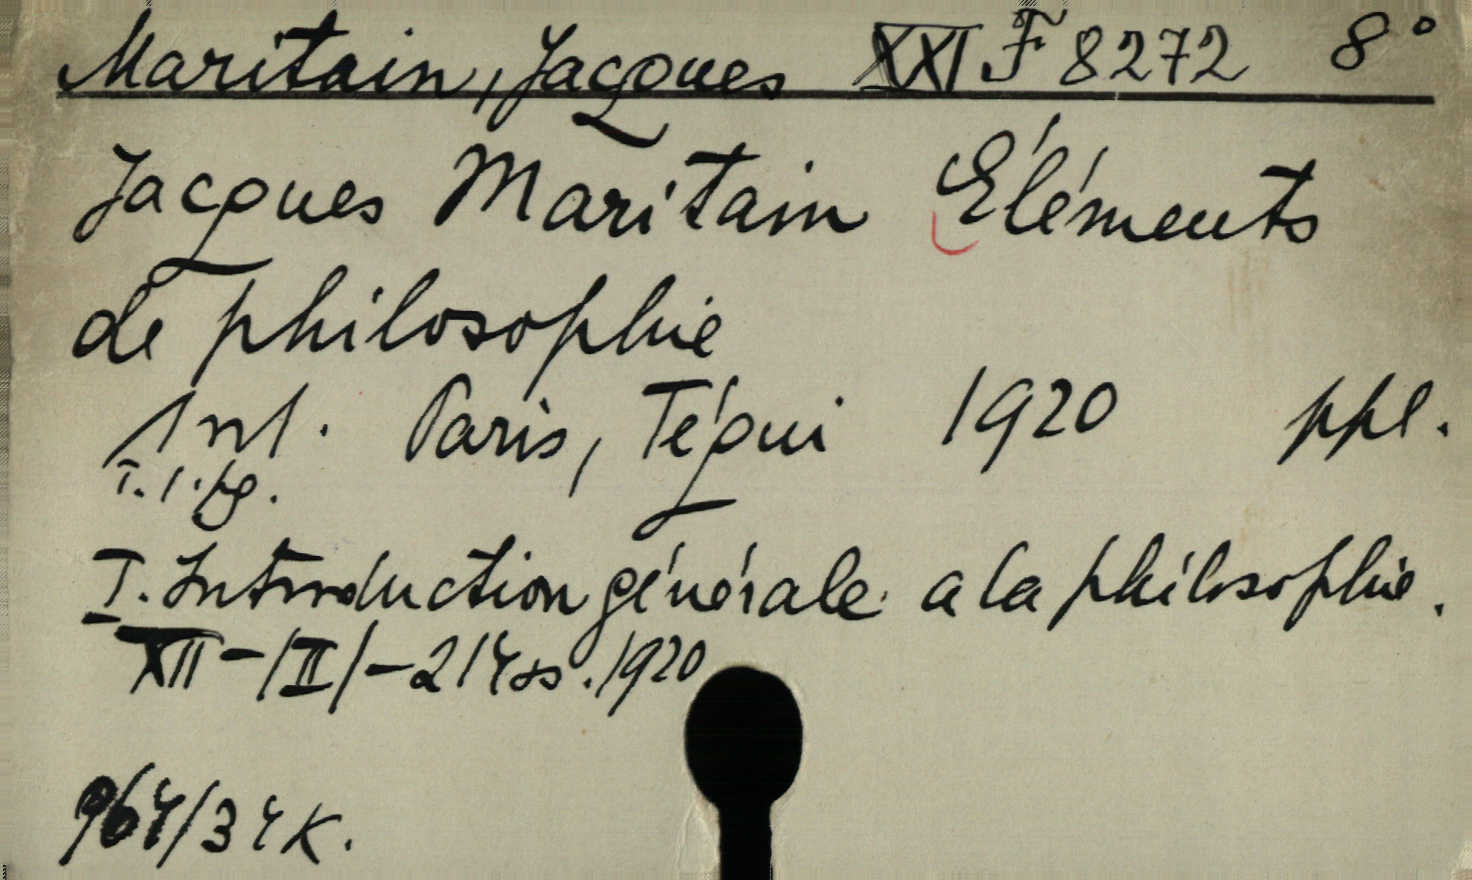 Maritain, Jacques XXI F 8272 8°
Jacques Maritain Éléments
de philosophie
Paris, Tégui 1920 ppl.
T. 1. fg.
I. Introduction générale a la philosophie.
XII-/II/-214 ss. 1920
964/34 K.